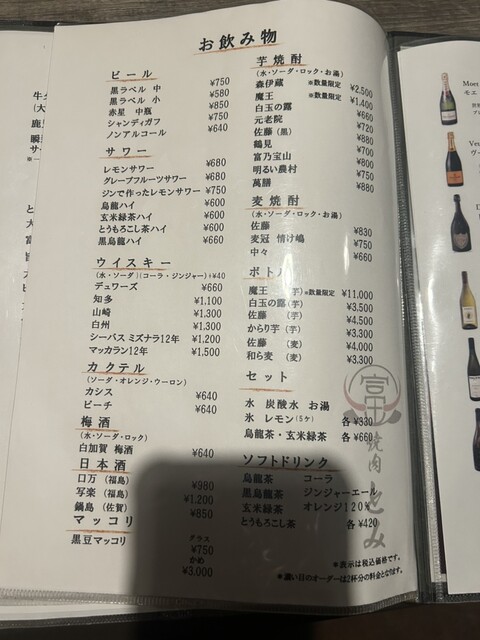 お飲み物
ビール
黒ラベル 中 ¥750
黒ラベル 小 ¥580
赤星 中瓶 ¥850
シャンディガフ ¥750
ノンアルコール ¥640
サワー
レモンサワー ¥680
グレープフルーツサワー ¥680
ジンで作ったレモンサワー ¥750
烏龍ハイ ¥600
玄米緑茶ハイ ¥600
とうもろこし茶ハイ ¥600
黒烏龍ハイ ¥660
ウイスキー
(水・ソーダ)(コーラ・ジンジャー)+¥40
デュワーズ ¥660
知多 ¥1,100
山崎 ¥1,300
白州 ¥1,300
シーバス ミズナラ12年 ¥1,200
マッカラン12年 ¥1,500
カクテル
(ソーダ・オレンジ・ウーロン)
カシス ¥640
ピーチ ¥640
梅酒
(水・ソーダ・ロック)
白加賀 梅酒 ¥640
日本酒
口万(福島) ¥980
写楽(福島) ¥1,200
鍋島(佐賀) ¥850
マッコリ
黒豆マッコリ グラス ¥750
かめ ¥3,000
芋焼酎
(水・ソーダ・ロック・お湯)
森伊蔵 ※数量限定 ¥2,500
魔王 ※数量限定 ¥1,400
白玉の露 ¥660
元老院 ¥720
佐藤(黒) ¥880
鶴見 ¥700
富乃宝山 ¥880
明るい農村 ¥750
萬膳 ¥880
麦焼酎
(水・ソーダ・ロック・お湯)
佐藤 ¥830
麦冠 情け嶋 ¥750
中々 ¥660
ボトル
魔王 (芋) ※数量限定 ¥11,000
白玉の露(芋) ¥3,500
佐藤 (芋) ¥4,500
からり芋(芋) ¥3,300
佐藤 (麦) ¥4,000
和ら麦 (麦) ¥3,300
セット
水 炭酸水 お湯
氷 レモン(5ケ) 各¥330
烏龍茶・玄米緑茶 各¥660
ソフトドリンク
烏龍茶 コーラ
黒烏龍茶 ジンジャーエール
玄米緑茶 オレンジ120%
とうもろこし茶 各¥420
※表示は税込価格です。
※濃い目のオーダーは2杯分の料金となります。
焼肉 とみ